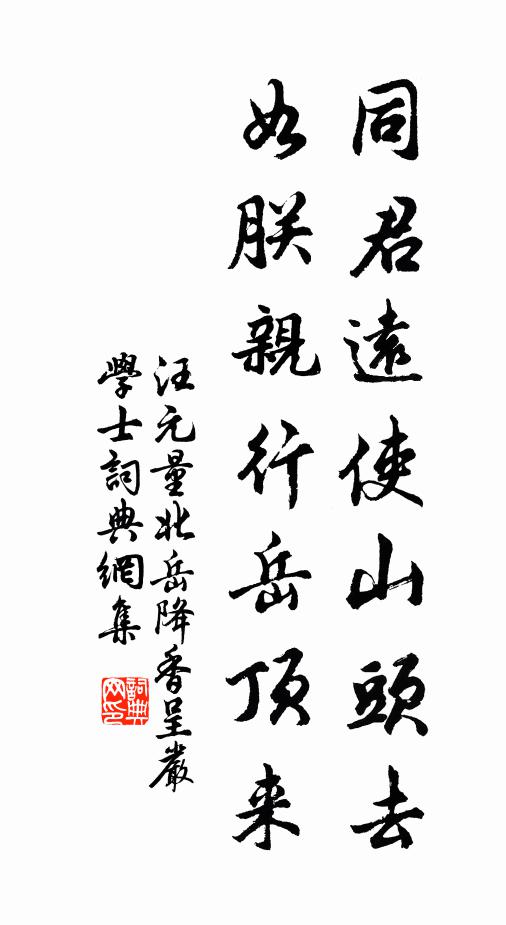 同君遠使山頭去
如朕親行岳頂来
汪元量北岳降香呈嚴
學士詞典網集
詞典网印